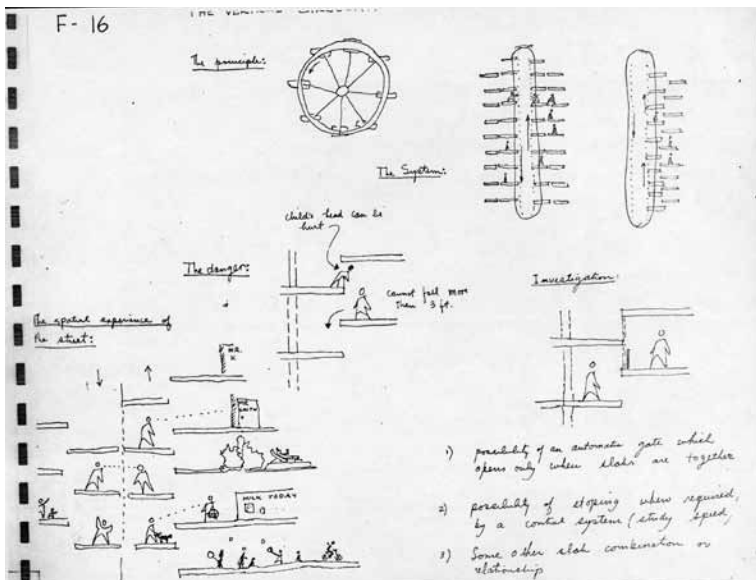 F-16
THE VERTICAL
The principle:
The System:
child's head can be
hurt
The danger:
cannot fall more
then 3 ft.
Investigation:
The spatial experience of
the street:
MR.
X
MILK TODAY
1) possibility of an automatic gate which
opens only when slabs are together
2) possibility of stoping when required,
by a control system (study speed)
3) Some other slab combination or
relationship